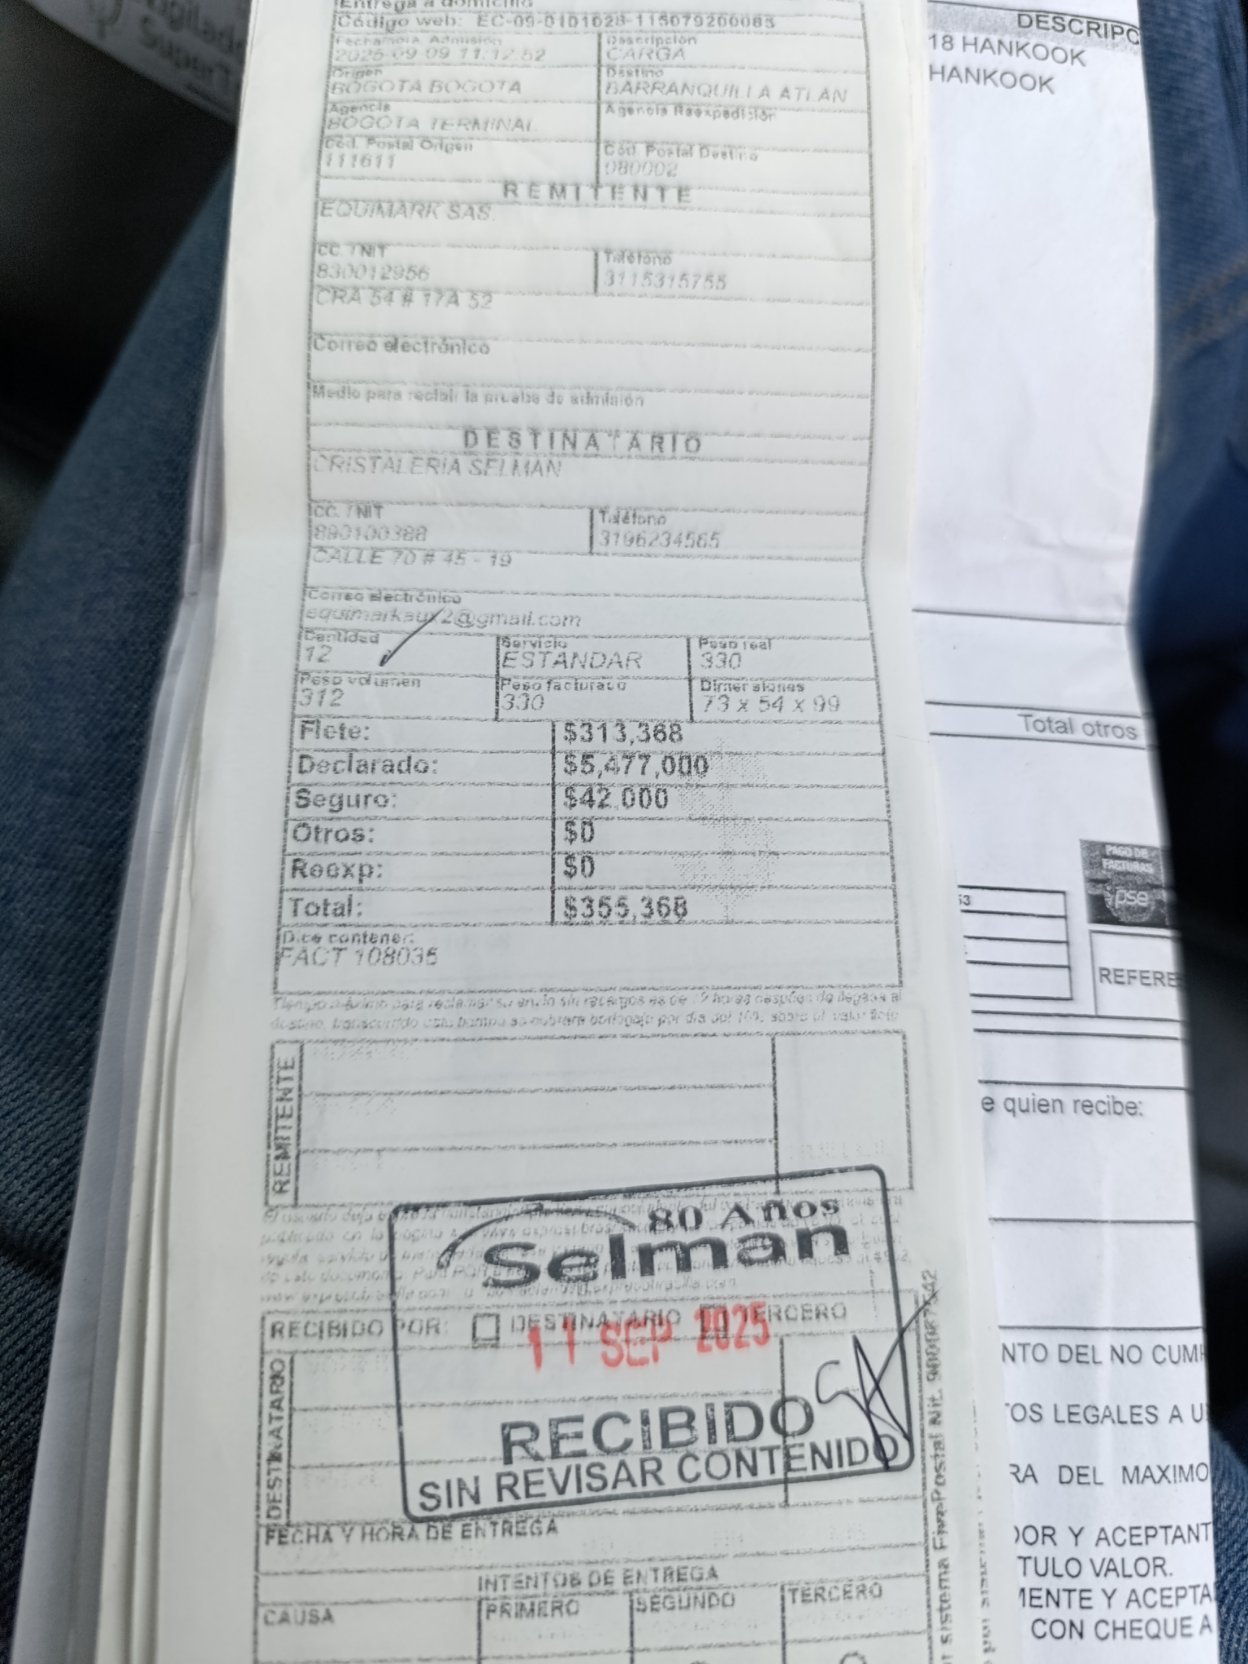 Entrega a domicilio
Código web: EC-09-0101028-115079200083
Fecha Admisión
2025-09-09 11:12:52
Descripción
CARGA
Origen
BOGOTA BOGOTA
Destino
BARRANQUILLA ATLAN
Agencia
BOGOTA TERMINAL
Agencia Reexpedición
Cód. Postal Origen
111611
Cód. Postal Destino
080002
REMITENTE
EQUIMARK SAS.
CC. / NIT
830012956
Teléfono
3115315755
CRA 54 # 17A 52
Correo electrónico
Medio para recibir la prueba de admisión
DESTINATARIO
CRISTALERIA SELMAN
CC. / NIT
890100388
Teléfono
3196234565
CALLE 70 # 45 - 19
Correo electrónico
equimarkaux2@gmail.com
Cantidad
12
Servicio
ESTANDAR
Peso real
330
Peso volumen
312
Peso facturado
330
Dimensiones
73 x 54 x 99
Flete: $313,368
Declarado: $5,477,000
Seguro: $42,000
Otros: $0
Reexp: $0
Total: $355,368
Dice contener:
FACT 108035
REMITENTE
80 Años
Selman
RECIBIDO POR: DESTINATARIO TERCERO
11 SEP 2025
RECIBIDO
SIN REVISAR CONTENIDO
DESTINATARIO
FECHA Y HORA DE ENTREGA
INTENTOS DE ENTREGA
CAUSA PRIMERO SEGUNDO TERCERO
DESCRIPC
18 HANKOOK
HANKOOK
Total otros
PAGO DE
FACTURAS
pse
REFERE
e quien recibe:
NTO DEL NO CUM
OS LEGALES A U
RA DEL MAXIMO
DOR Y ACEPTANT
TULO VALOR.
MENTE Y ACEPTA
CON CHEQUE A